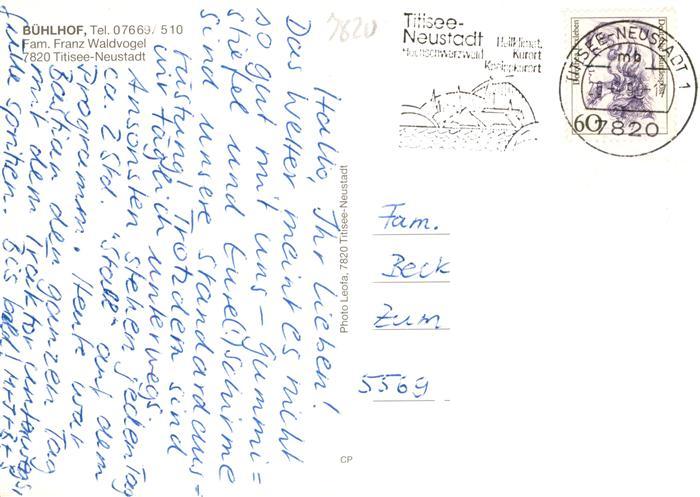 BÜHLHOF, Tel. 07669/510
Fam. Franz Waldvogel
7820 Titisee-Neustadt
7820
Titisee-
Neustadt
Hochschwarzwald
Heilklimat.
Kurort
Kneippkurort
TITISEE-NEUSTADT 1
mb
7820
60
Hallo, Ihr Lieben!
Das Wetter meint es nicht
so gut mit uns - Gummi=
stiefel und Eure(!) Schirme
sind unsere Standardaus-
rüstung! Trotzdem sind
wir täglich unterwegs.
Ansonsten stehen jeden Tag
ca. 2 Std. "Stall" auf dem
Programm. Heute war
Bastian den ganzen Tag
mit dem Traktor unterwegs
spritzen. Bis bald!
Photo Leofa, 7820 Titisee-Neustadt
CP
Fam.
Beck
Zum
5569